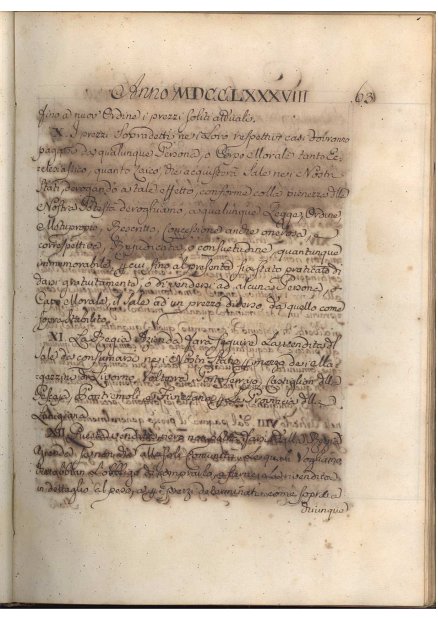 Anno MDCCLXXXVIII 63
fino a nuov' Ordine i prezzi soliti attuali.
X. I prezzi sopradetti nei loro respettivi casi dovranno
pagarsi da qualunque Persona, o Corpo Morale tanto Ec-
clesiastico, quanto Laico, che acquisterà Sale nei Nostri
Stati derogando a tale effetto, conforme colla pienezza della
Nostra Potestà deroghiamo, a qualunque Legge, Ordine,
Motuproprio, Rescritto, Concessione anche onerosa, e
correspettiva, Privativa, o consuetudine, quantunque
immemorabile, per cui fino al presente sia stato praticato di
dare gratuitamente, o di vendere ad alcuna Persona, o
Corpo Morale, il Sale ad un prezzo diverso da quello come
sopra stabilito.
XI. La Regia Azienda farà seguire la vendita del
Sale da consumarsi nei Nostri Stati per mezzo dei Ma-
gazzini di Livorno, Volterra, Portoferraio, Castiglion della
Pescaia, Pontremoli, e Fivizzano per la Provincia della
Lunigiana.
XII. Questa vendita verrà
alle sole Comunità, le quali Vogliamo
che abbian l'obbligo di comprarlo, e farne la rivendita
in dettaglio al peso, e prezzi come sopra
Dovunque